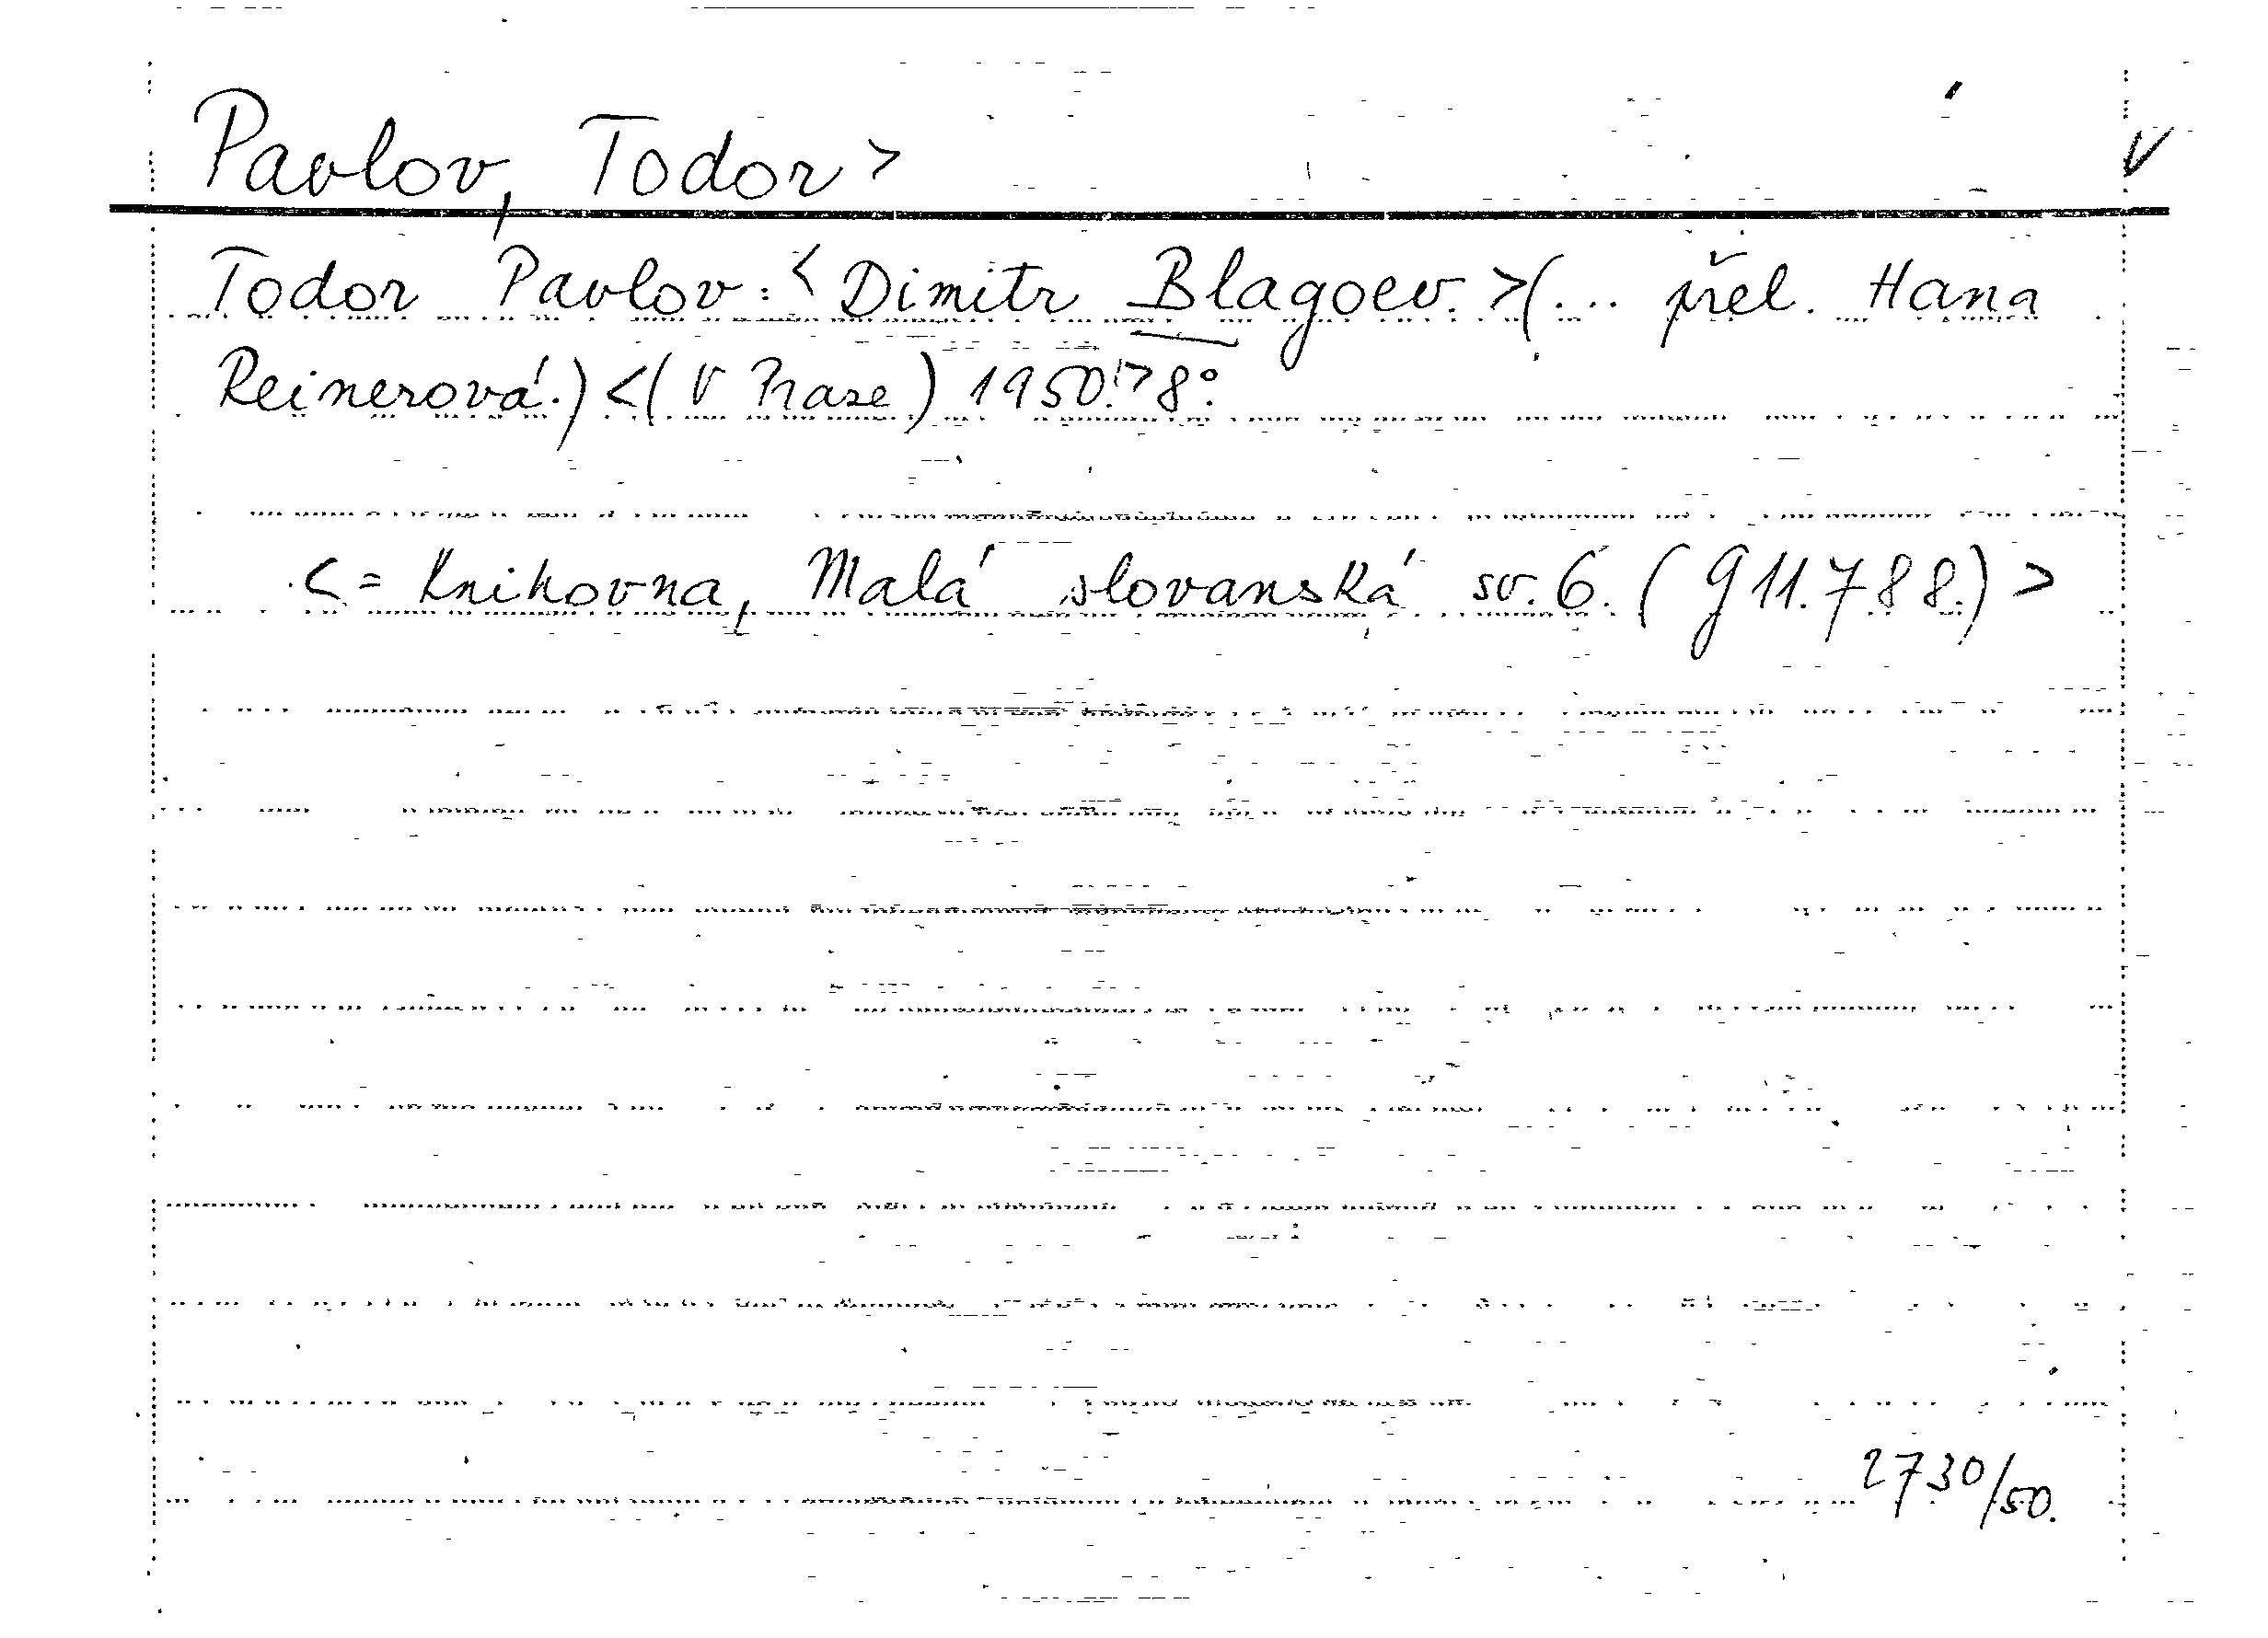 Pavlov, Todor > V
Todor Pavlov: < Dimitr Blagoev. >(... přel. Hana
Reinerová.) <(V Praze) 1950.> 8°.
<= Knihovna, Malá slovanská sv. 6. (G 11.788.) >
2730/50.